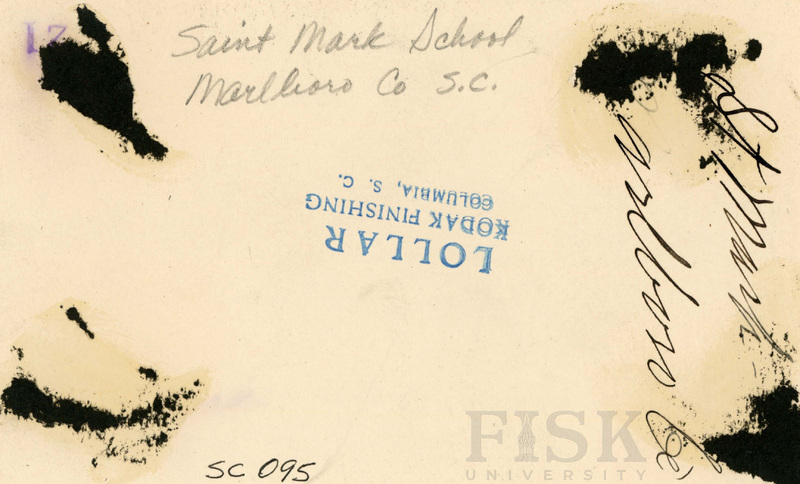 21
Saint Mark School
Marlboro Co S.C.
LOLLAR
KODAK FINISHING
COLUMBIA, S. C.
St Mark -
Marlboro Co
SC 095
FISK
UNIVERSITY